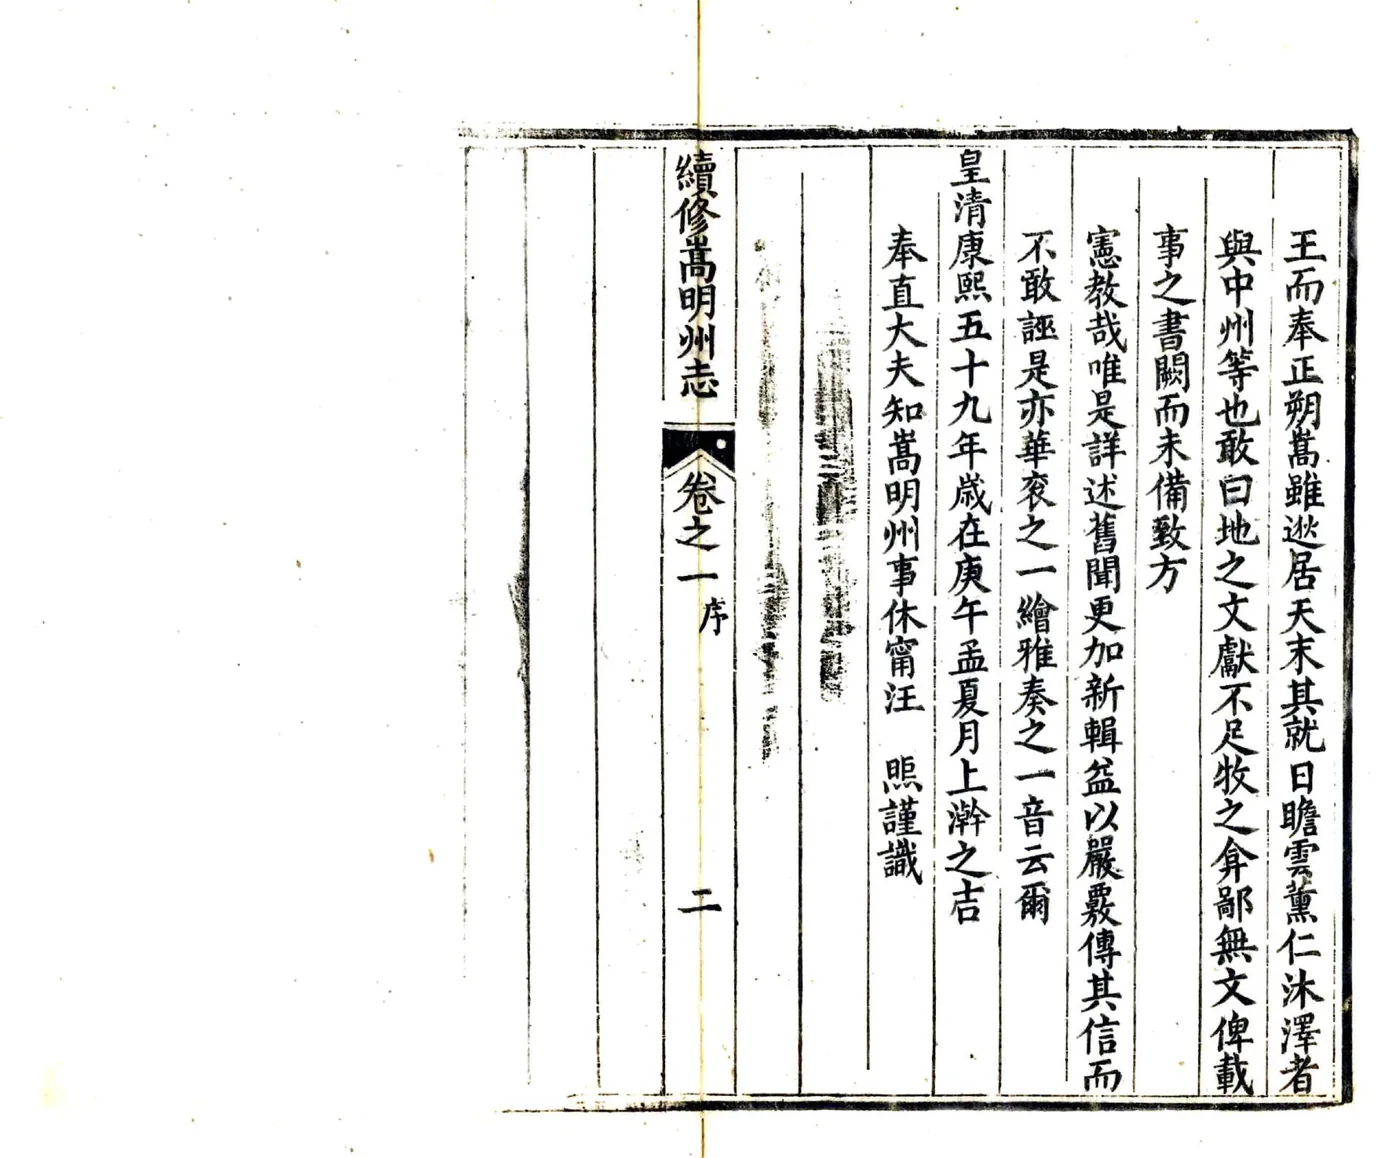 王而奉正朔嵩雖逖居天末其就日瞻雲薰仁沐澤者
與中州等也敢曰地之文獻不足牧之弇鄙無文俾載
事之書闕而未備致方
憲教哉唯是詳述舊聞更加新輯益以嚴覈傳其信而
不敢誣是亦華袞之一繪雅奏之一音云爾
皇清康熙五十九年歲在庚午孟夏月上澣之吉
奉直大夫知嵩明州事休甯汪　煦謹識
續修嵩明州志
卷之一
序
二